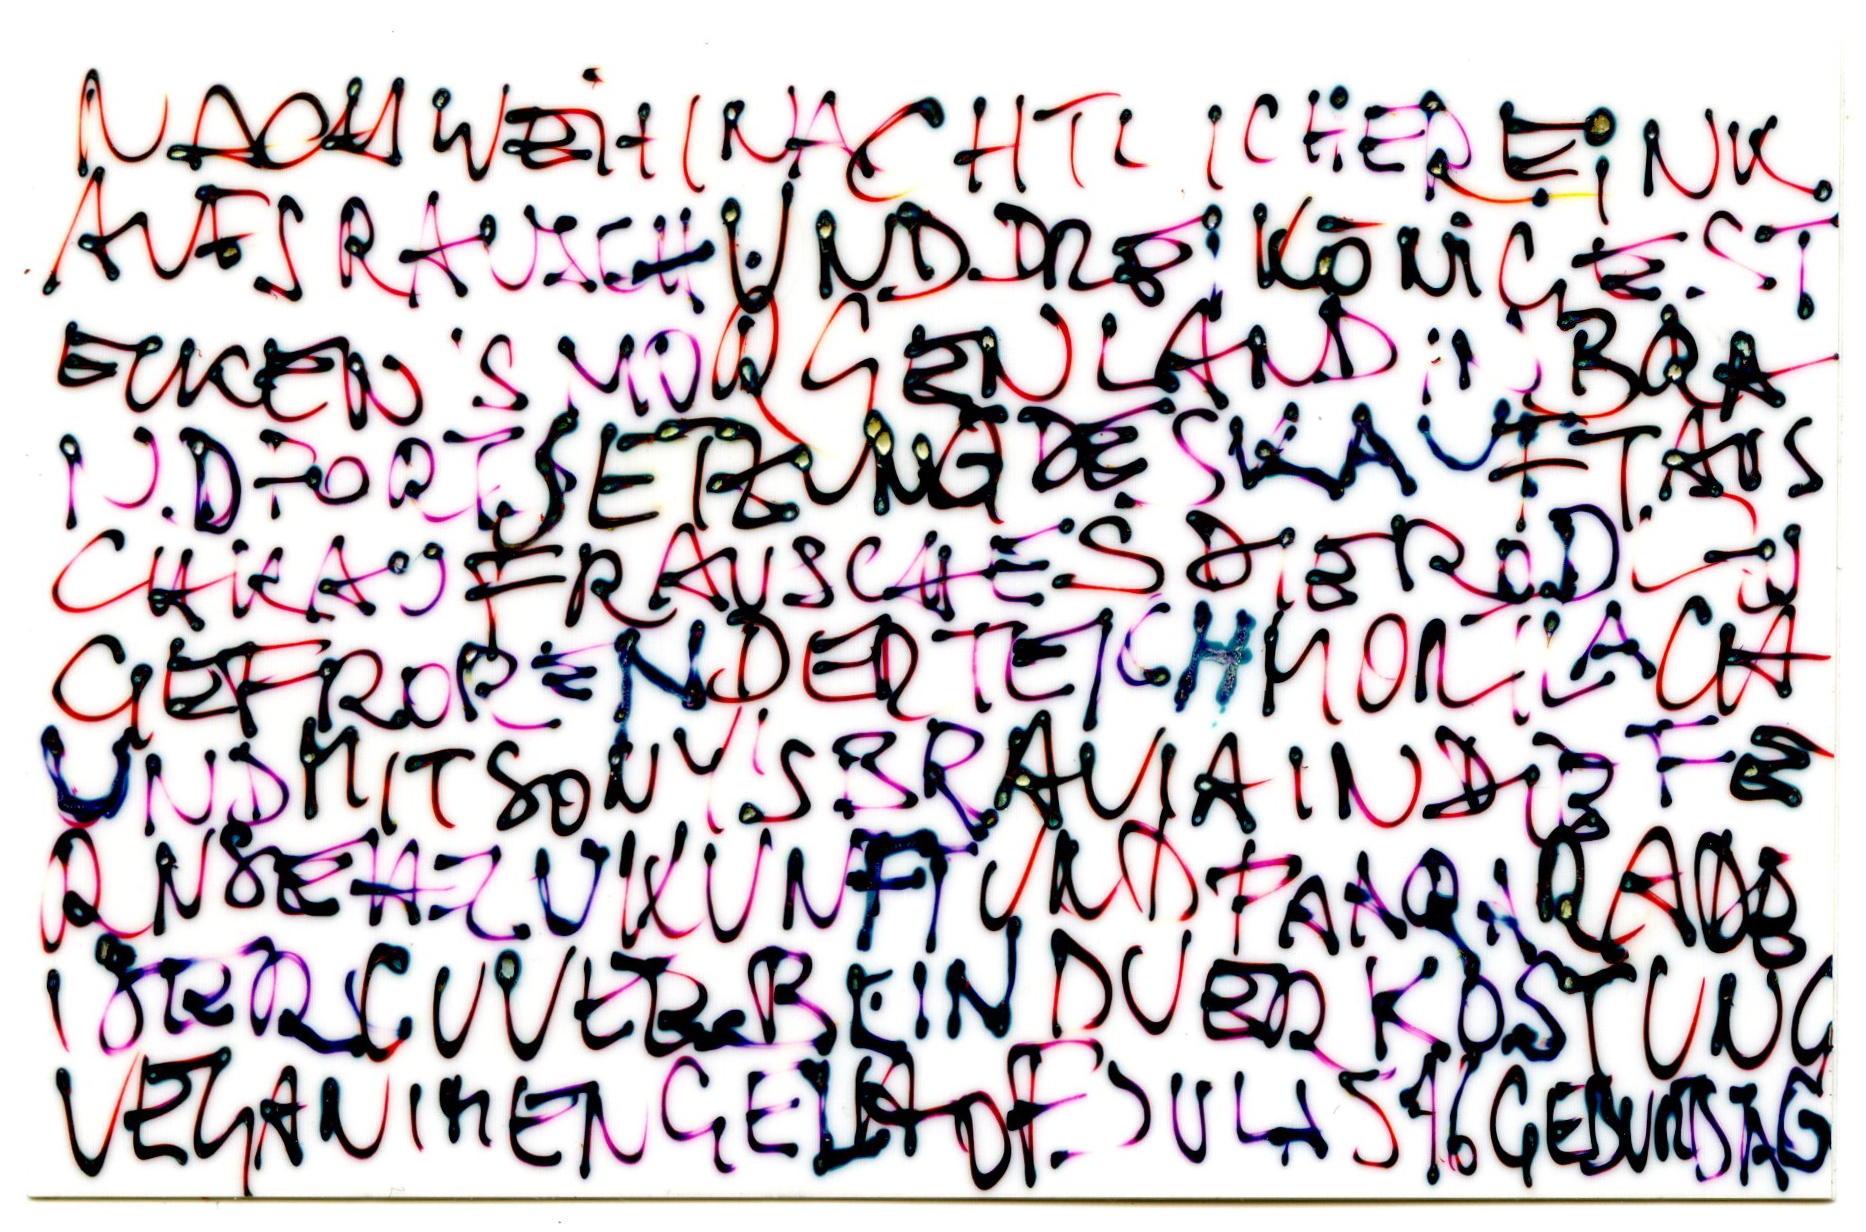 NACH WEIHNACHTLICHER EINK
AUFSRAUSCH UND DREIKÖNIGEST
ECKEN 'S MORGENLAND IN BRA
UND FORTSETZUNG DES KAUFTAUS
RAUSCHES DER
GEFROREN DER TEICH MORTLACH
UND MIT SONY'S BRAVIA IN DIE FE
RNSEHZUKUNFT UND PAARNRADB
ISTERCUVEE BEIN DU ERKOSTUNG
VEGAN IM ENGELHOF JULIAS 46 GEBURTSTAG